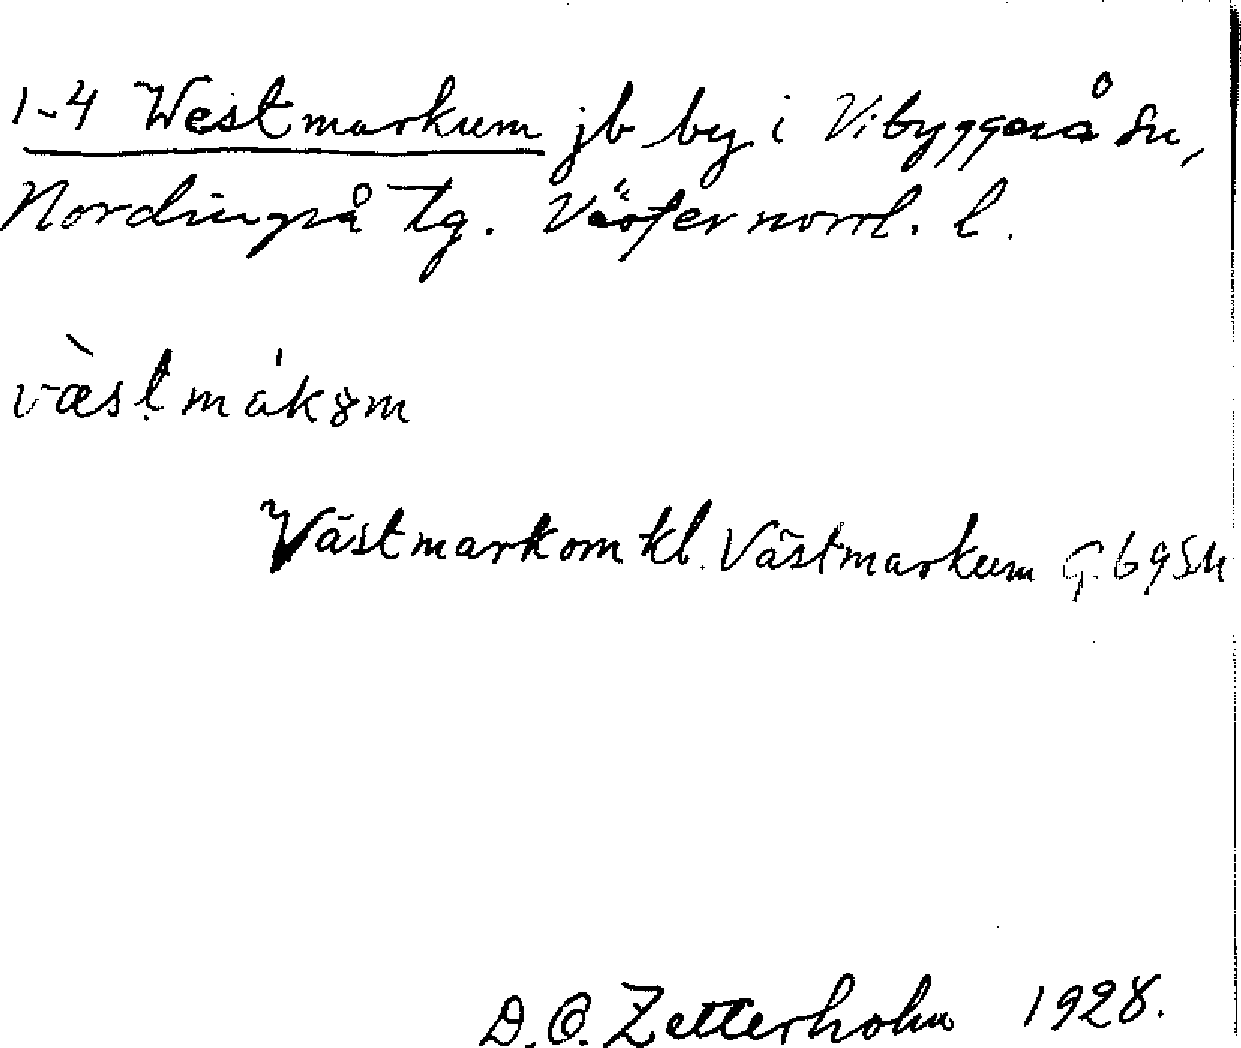 1-4 Westmarkum jb by i Vibyggerå sn,
Nordingrå tg. Västernorrl. l.
væ̀sṭmákȣm
Västmarkom kl. Västmarkum G. 69 SH
D. O. Zetterholm 1928.